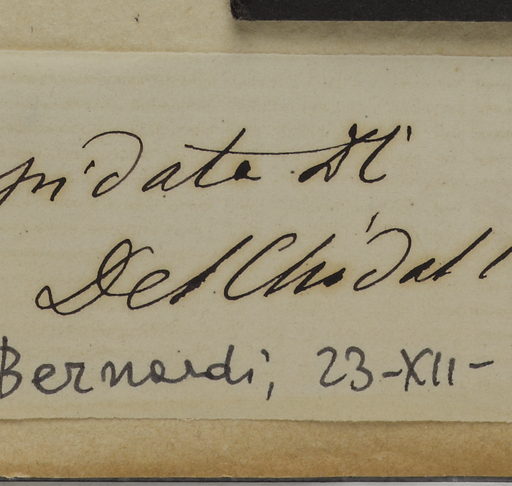 pidata Dl
Del Chidal
Bernardi, 23-XII-